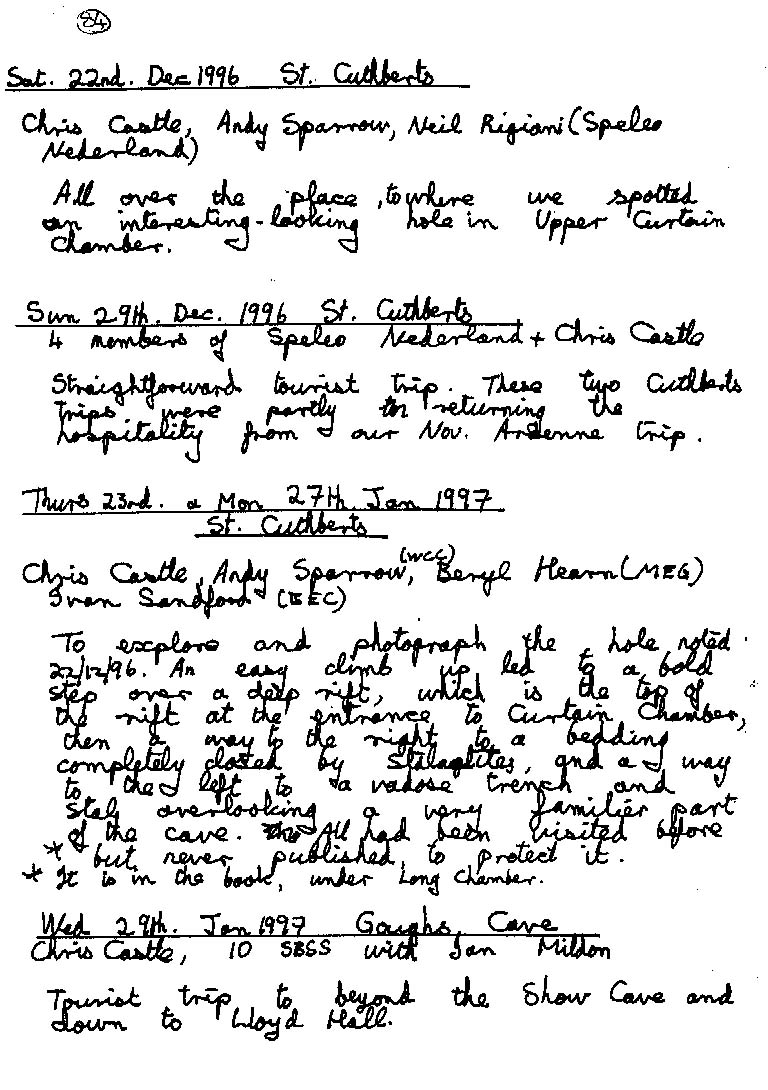 84
Sat. 22nd. Dec 1996 St. Cuthberts
Chris Castle, Andy Sparrow, Neil Rigiani (Speleo
Nederland)
All over the place, to where we spotted
an interesting-looking hole in Upper Curtain
Chamber.
Sun 29th. Dec. 1996 St. Cuthberts
4 members of Speleo Nederland + Chris Castle
Straightforward tourist trip. These two Cuthberts
trips were partly for returning the
hospitality from our Nov. Ardenne trip.
Thurs 23rd. & Mon 27th Jan 1997
St. Cuthberts
Chris Castle, Andy Sparrow, (WCC) Beryl Hearn (MEG)
Ivan Sandford (BEC)
To explore and photograph the hole noted
22/12/96. An easy climb up led to a bold
step over a deep rift, which is the top of
the rift at the entrance to Curtain Chamber,
then a way to the right to a bedding
completely closed by Stalagtites, and a way
to the left to a vadose trench and
stal overlooking a very familier part
of the cave. All had been visited before
* but never published, to protect it.
* It is in the book, under Long Chamber.
Wed 29th. Jan 1997 Goughs Cave
Chris Castle, 10 SBSS with Ian Mildon
Tourist trip to beyond the Show Cave and
down to Lloyd Hall.